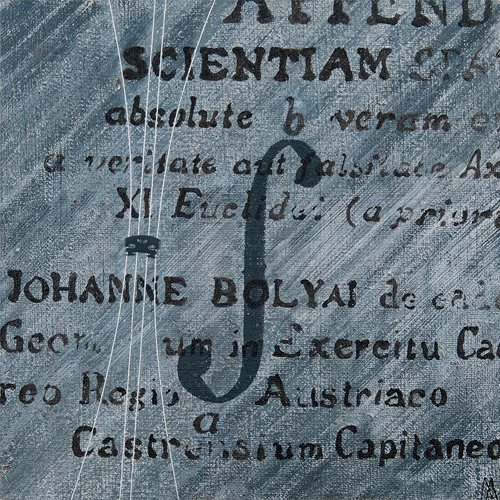 APPEND
SCIENTIAM SPA
absolute b veram e
a veritate aut falsitate Ax
XI Euclidei (a priori
JOHANNE BOLYAI de ead
Geom um in Exercitu Cae
reo Regio Austriaco
a
Castrensium Capitaneo